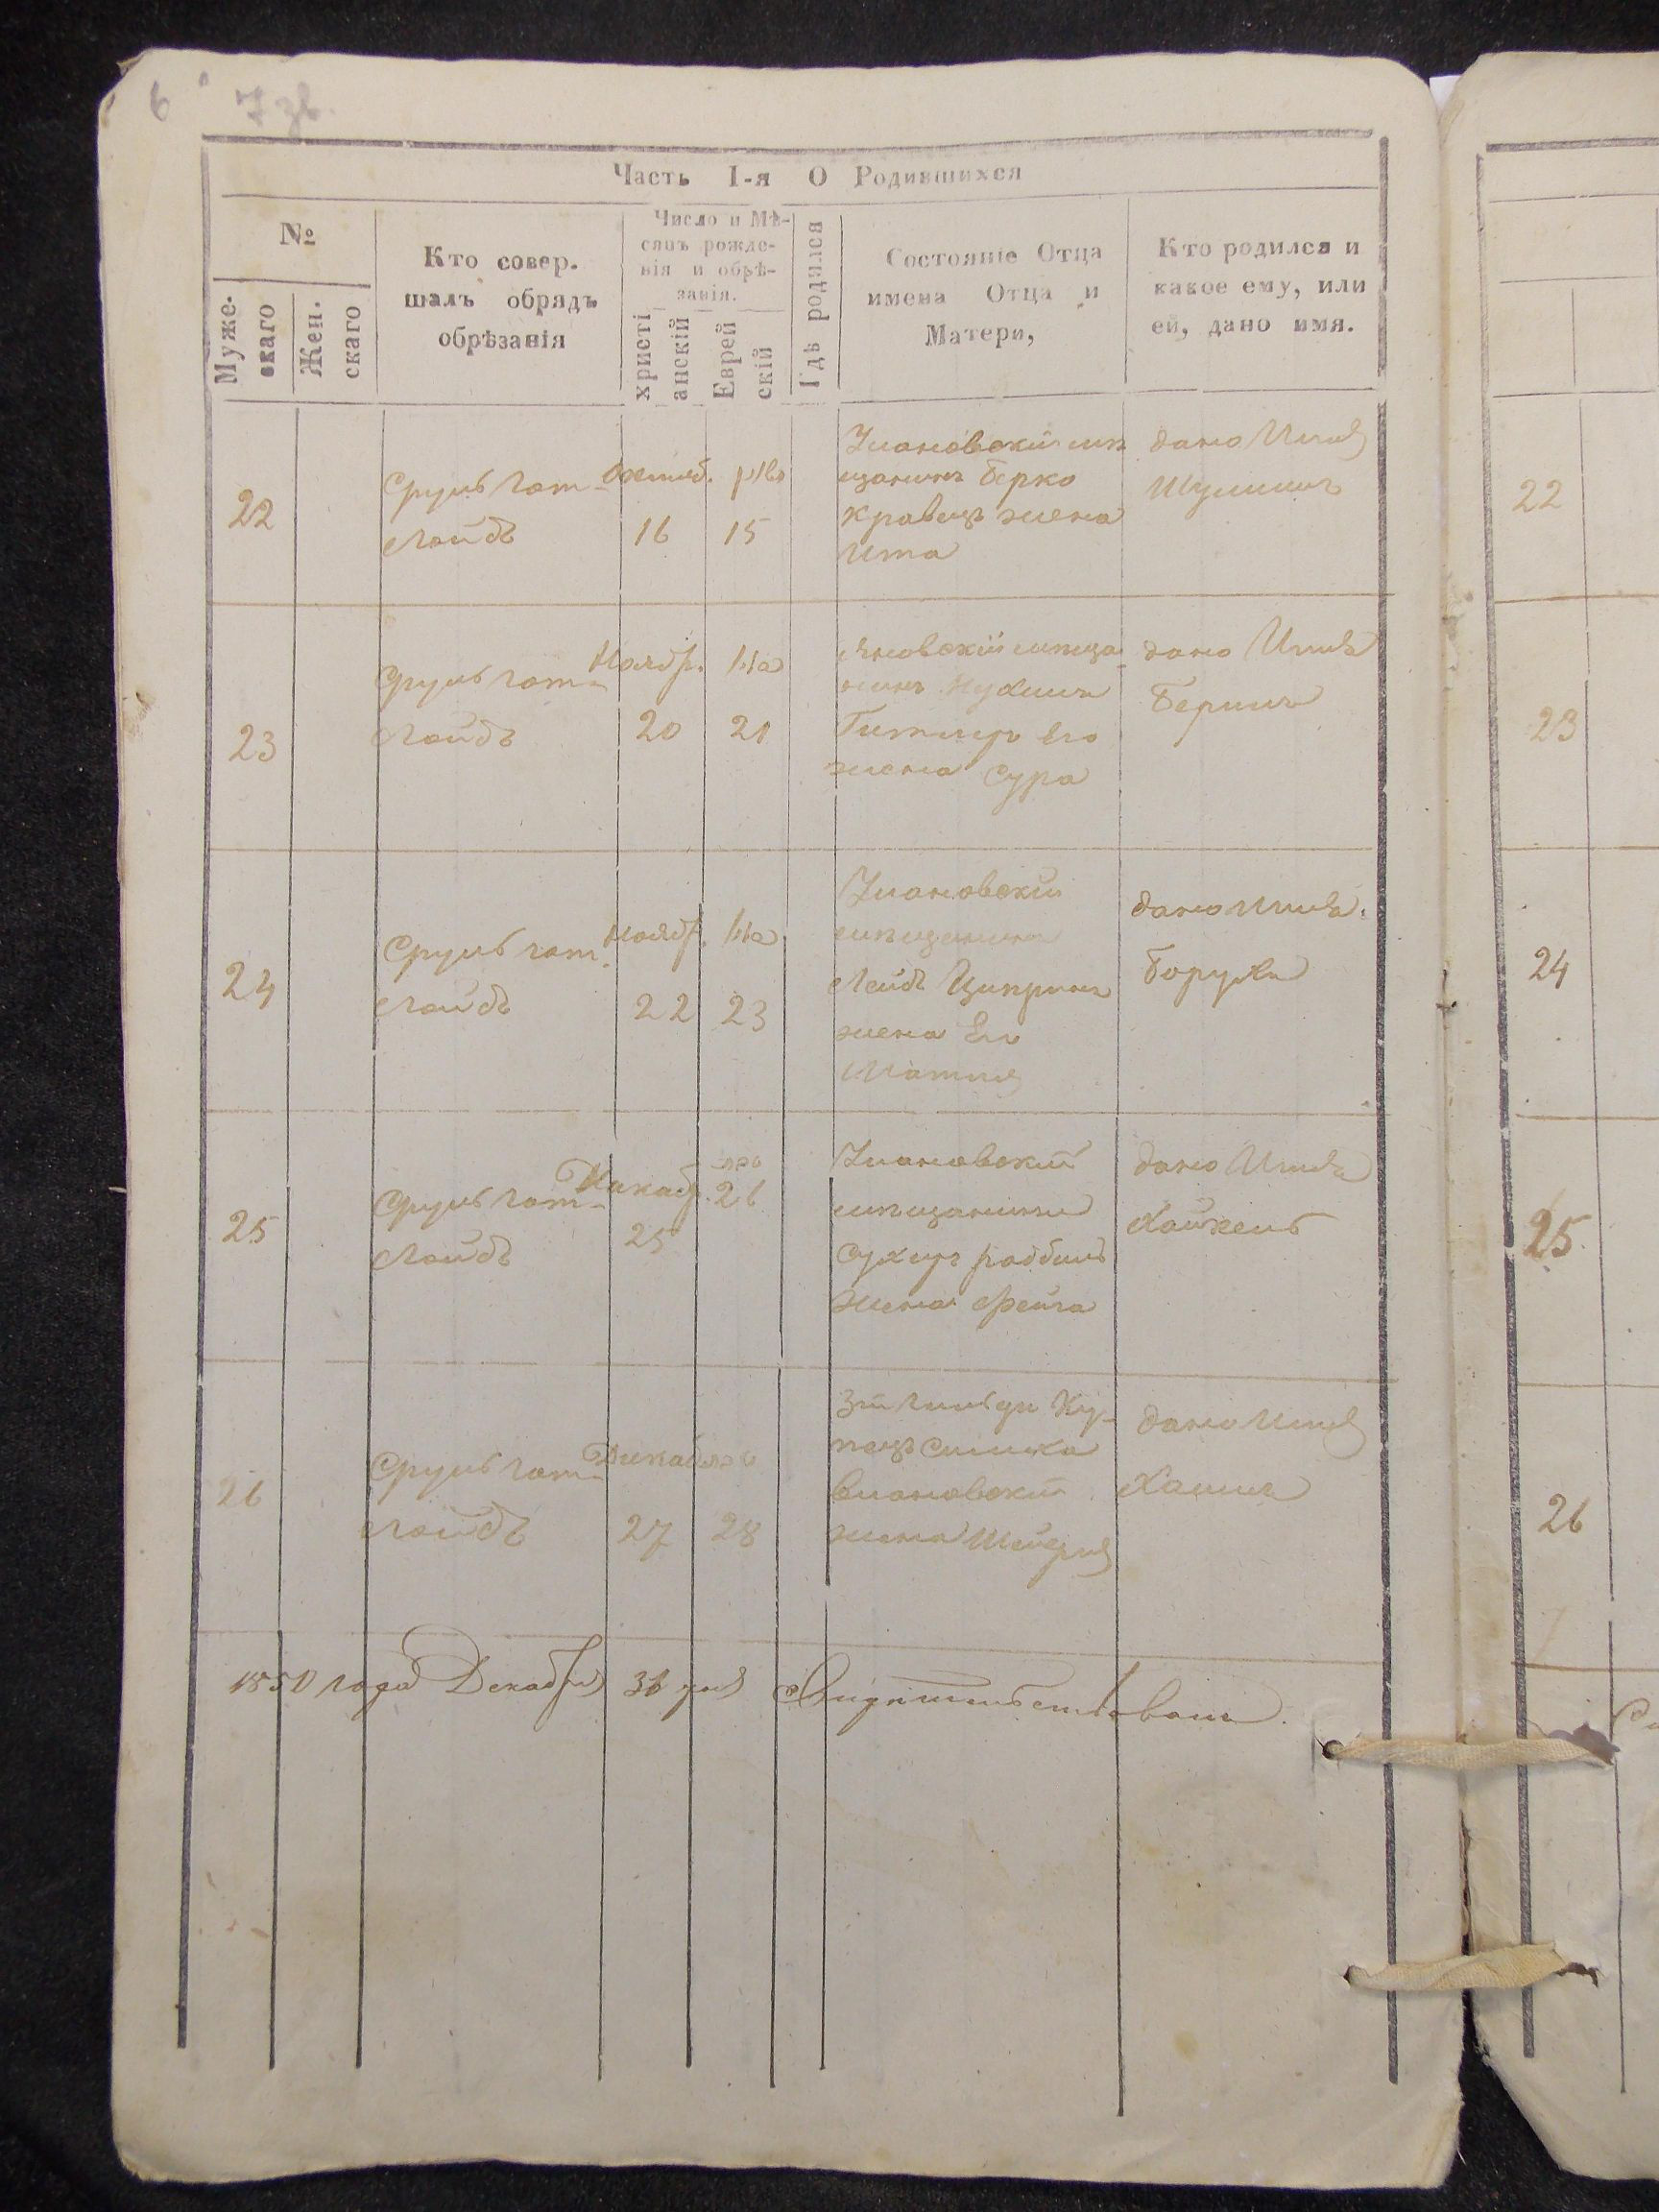 6 7 зв.
Часть I-я О Родившихся
№
Муже-
скаго
Жен.
скаго
Кто совер.
шалъ обрядъ
обрѣзанія
Число и Мѣ-
сяцъ рожде-
нія и обрѣ-
занія.
христі
анскій
Еврей
скій
Гдѣ родился
Состояніе Отца
имена Отца и
Матери,
Кто родился и
какое ему, или
ей, дано имя.
22
Сруль Гот-
лойбъ
Октяб.
16
15
Улановскій мѣ
щанинъ Берко
Кравецъ жена
Ита
дано Имя
Шулимъ
22
23
Сруль Гот-
лойбъ
Ноябр.
20
21
мѣща-
нинъ Нухимъ
его
жена Сура
дано Имя
Беримъ
23
24
Сруль Гот-
лойбъ
Ноябр.
22
23
Улановскій
мѣщанинъ
Лейб Ципринъ
жена Его
дано Имя
Борухъ
24
25
Сруль Гот-
лойбъ
Декабр.
25
26
Улановскій
мѣщанинъ
жена Фейга
дано Имя
Хайкель
25
26
Сруль Гот-
лойбъ
Декабря
27
28
3й Гильди Ку-
пецъ Симха
Улановскій
жена
дано Имя
Хаимъ
26
1850 года Декабря 31 дня Свидѣтельствовалъ.